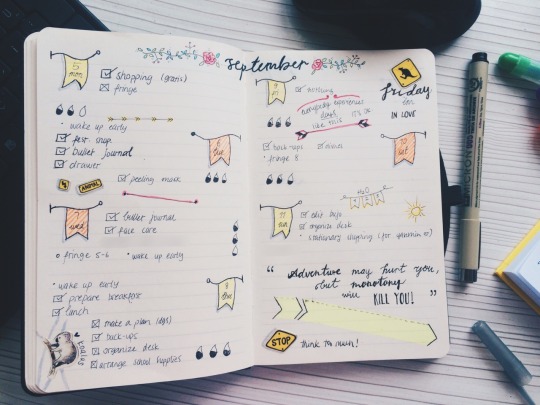 September
5
mon
shopping (gratis)
fringe
wake up early
first snap
bullet journal
drawer
6
tue
peeling mask
7
wed
bullet journal
face care
fringe 5-6
wake up early
8
thu
wake up early
prepare breakfast
lunch
make a plan (dgs)
back-ups
organize desk
arrange school supplies
9
fri
nothing
everybody experiences
days
like this
it's ok
friday
I'm
IN LOVE
back-ups
fringe 8
10
sat
H2O
11
sun
edit
organize desk
stationery shopping (for
"Adventure may hurt you,
but monotony
will KILL YOU!"
STOP
think too much!